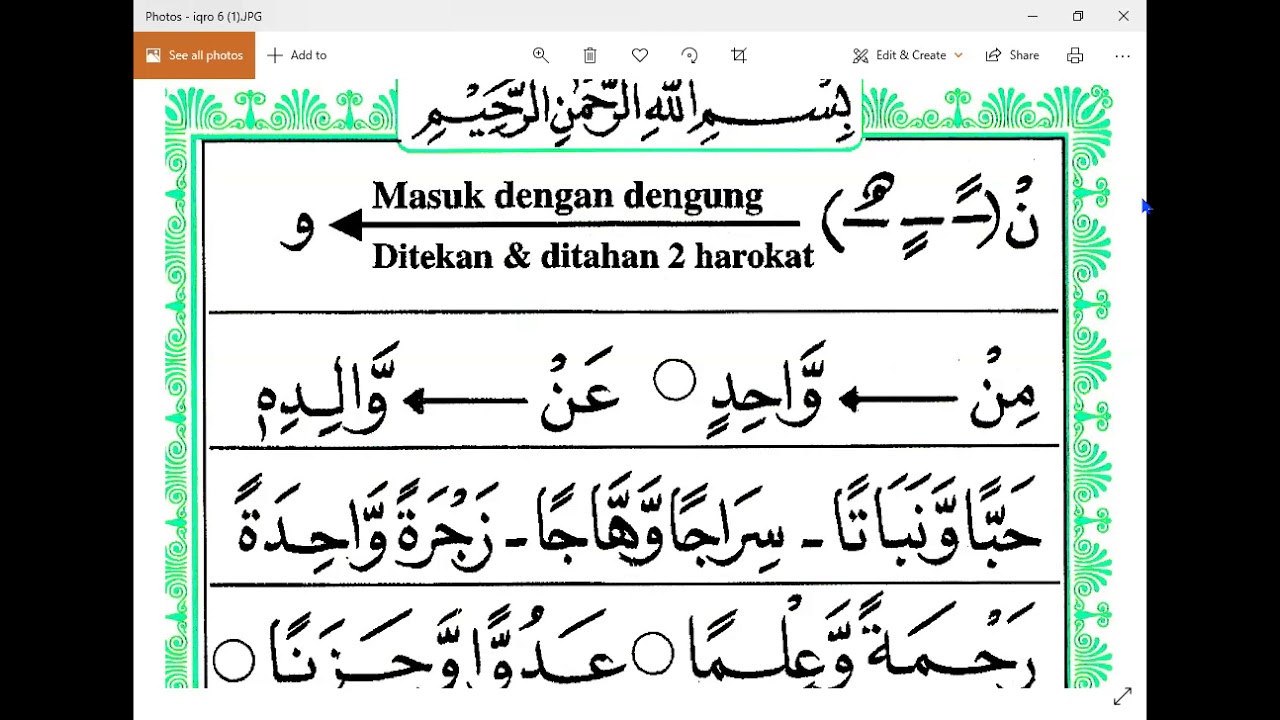 Photos - iqro 6 (1).JPG
See all photos
Add to
Edit & Create
Share
بِسْمِ اللهِ الرَّحْمٰنِ الرَّحِيْمِ
نْ (ـًـ ـٍـ ـٌـ) Masuk dengan dengung و
Ditekan & ditahan 2 harokat
مِنْ وَّاحِدٍ عَنْ وَّالِدِهٖ
حَبًّا وَّنَبَاتًا - سِرَاجًا وَّهَّاجًا - زَجْرَةً وَّاحِدَةً
رَحْمَةً وَّعِلْمًا عَدُوًّا وَّحَزَنًا